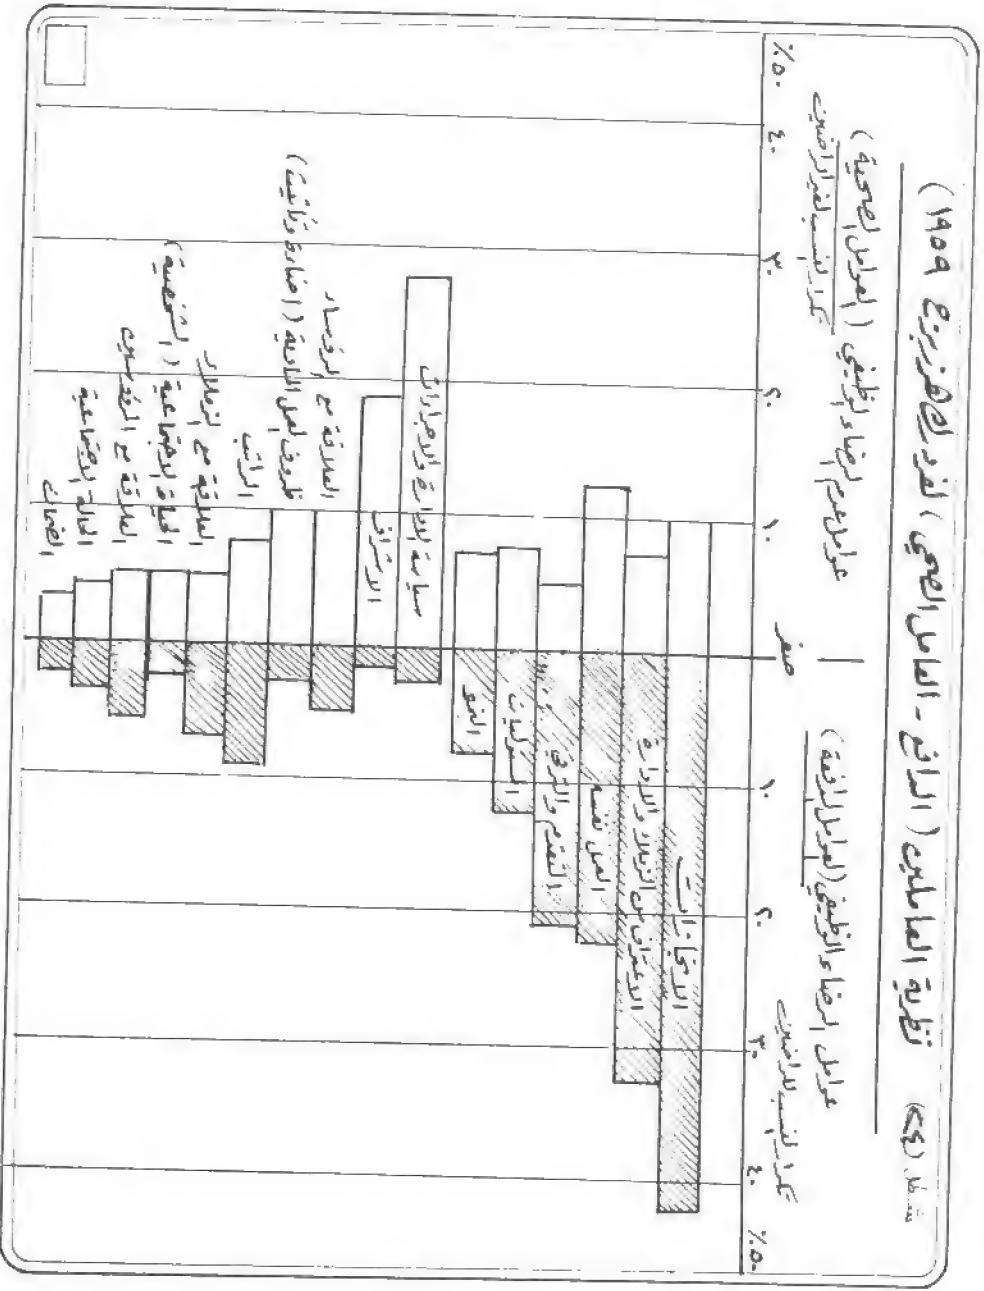 شكل (٢٤) نظرية العاملين (الدافع - العامل الصحي) لفردريك هرزبرج ١٩٥٩)
عوامل الرضاء الوظيفي (العوامل الدافعة)
عوامل عدم الرضاء الوظيفي (العوامل الصحية)
تكرار النسب للراضين
تكرار النسب لغير الراضين
٪٥٠
٤٠
٣٠
٢٠
١٠
صفر
١٠
٢٠
٣٠
٤٠
٪٥٠
الانجازات
الاعتراف من الزملاء والادارة
العمل نفسه
التقدم والترقي
المسئوليات
النمو
سياسة الادارة والاجراءات
الاشراف
العلاقة مع الرؤساء
ظروف العمل المادية (اضاءة
الراتب
العلاقة مع الزملاء
الحياة الاجتماعية (الشخصية)
العلاقة مع المرؤوسين
الحالة الاجتماعية
الضمان